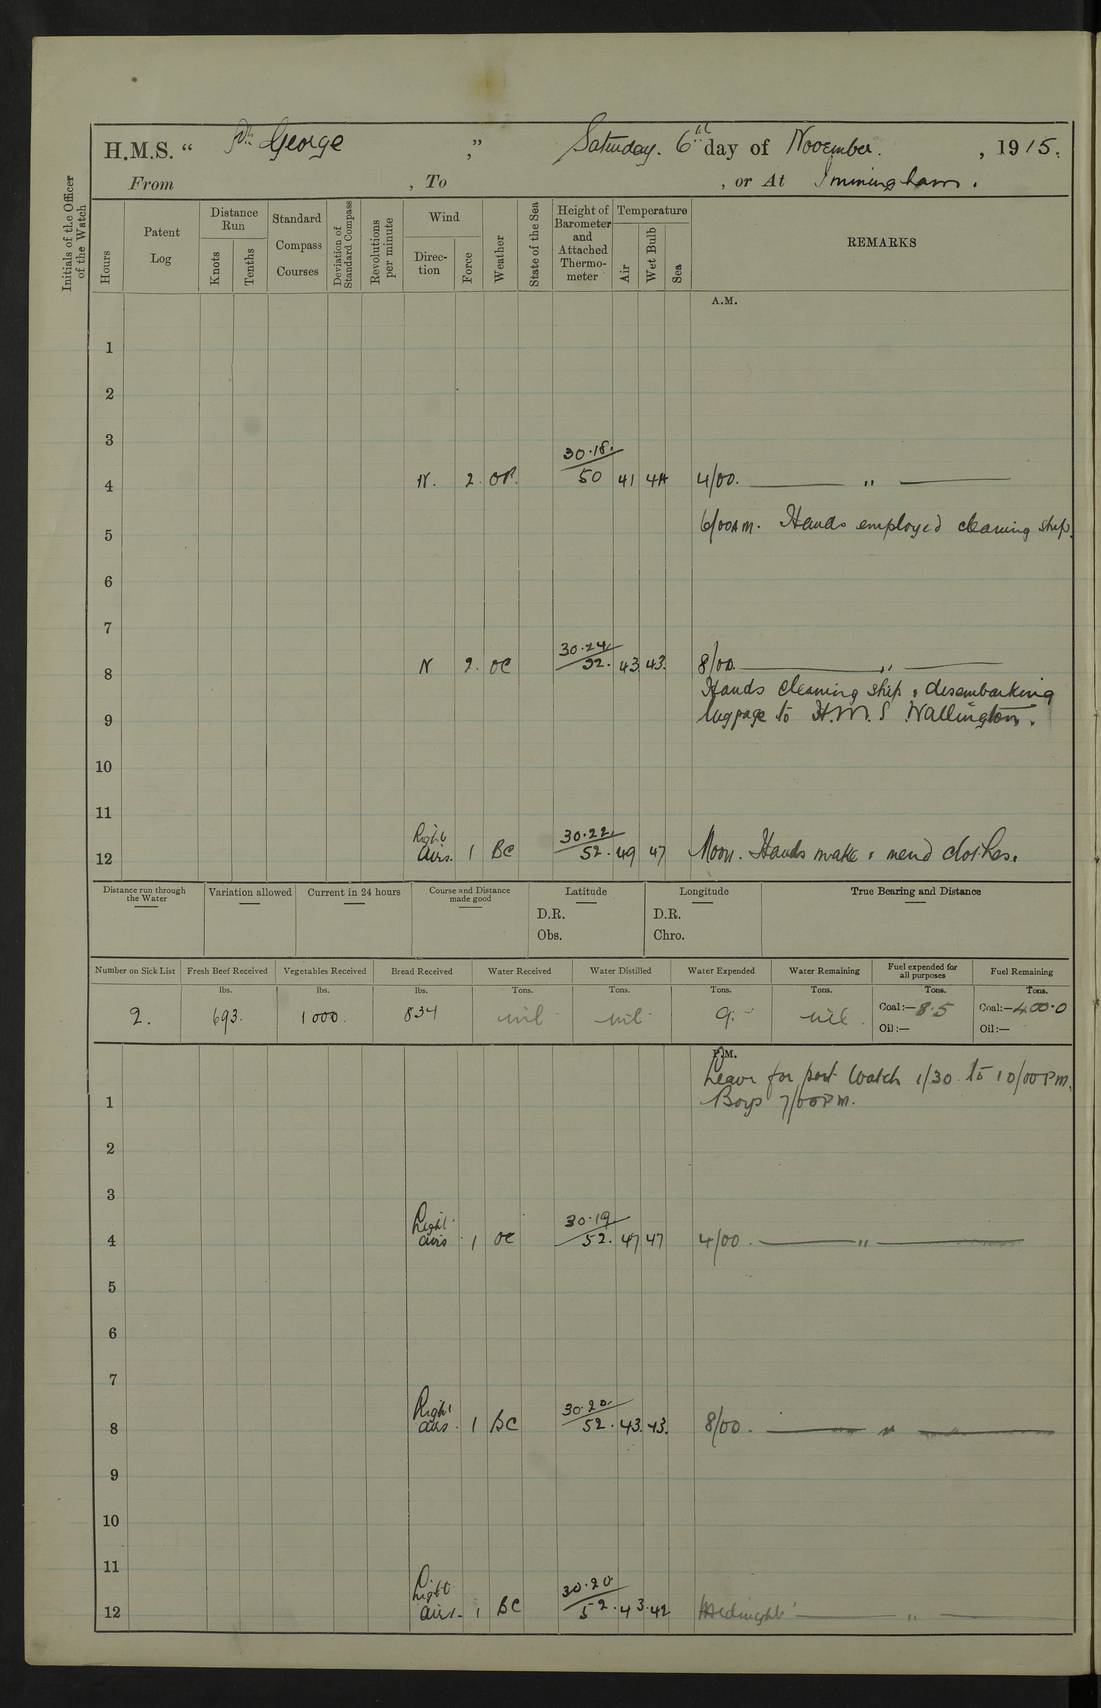 H.M.S. “ St. George ,” Saturday. 6th day of November. , 1915.
From , To , or At Immingham.
Initials of the Officer of the Watch
Hours
Patent Log
Distance Run
Knots
Tenths
Standard Compass Courses
Deviation of Standard Compass
Revolutions per minute
Wind
Direction
Force
Weather
State of the Sea
Height of Barometer and Attached Thermometer
Temperature
Air
Wet Bulb
Sea
REMARKS
A.M.
1
2
3
30.18.
4 N. 2. 50 41 4/00. ——— " ———
6/00 AM. Hands employed cleaning ship.
5
6
7
30.24
8 N 2. OC 52. 43. 43. 8/00 ——— " ———
Hands cleaning ship & disembarking
9 luggage to H.M.S Wallington.
10
11
Light 30.22.
12 airs. 1 BC 52. 49 47 Noon. Hands make & mend clothes.
Distance run through the Water
Variation allowed
Current in 24 hours
Course and Distance made good
Latitude
D.R.
Obs.
Longitude
D.R.
Chro.
True Bearing and Distance
Number on Sick List Fresh Beef Received Vegetables Received Bread Received Water Received Water Distilled Water Expended Water Remaining Fuel expended for all purposes Fuel Remaining
lbs. lbs. lbs. Tons. Tons. Tons. Tons. Tons. Tons.
2. 693. 1000. 834 nil nil 9. nil Coal:—8.5 Coal:—400.0
Oil:— Oil:—
P.M.
Leave for port watch 1/30 to 10/00 PM.
1 Boys 7/00 PM.
2
3
Light 30.19
4 airs 1 OC 52. 47 47 4/00. ——— " ———
5
6
7
Light 30.20.
8 airs. 1 BC 52. 43. 43. 8/00. ——— " ———
9
10
11
Light 30.20
12 airs. 1 BC 52. 43. 42 Midnight ——— " ———